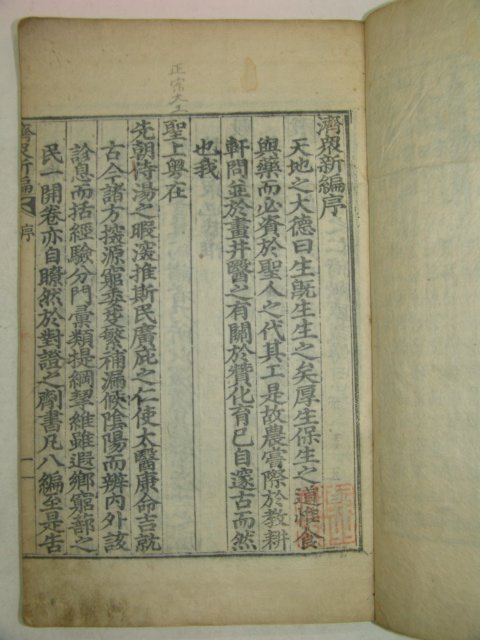 濟衆新編序
天地之大德曰生旣生生之矣厚生保生之道惟食
與藥而必資於聖人之代其工是故農嘗際於教耕
軒問並於畫井醫之有關於贊化育已自邃古而然
也我
聖上粤在
先朝侍湯之暇深推斯民廣庇之仁使太醫康命吉就
古今諸方探源窮委芟繁補漏候陰陽而辨內外該
診息而括經驗分門彙類提綱挈維雖遐鄉窮蔀之
民一開卷亦自瞭然於對證之劑書凡八編至是告
濟衆新編 序 一
正宗大王